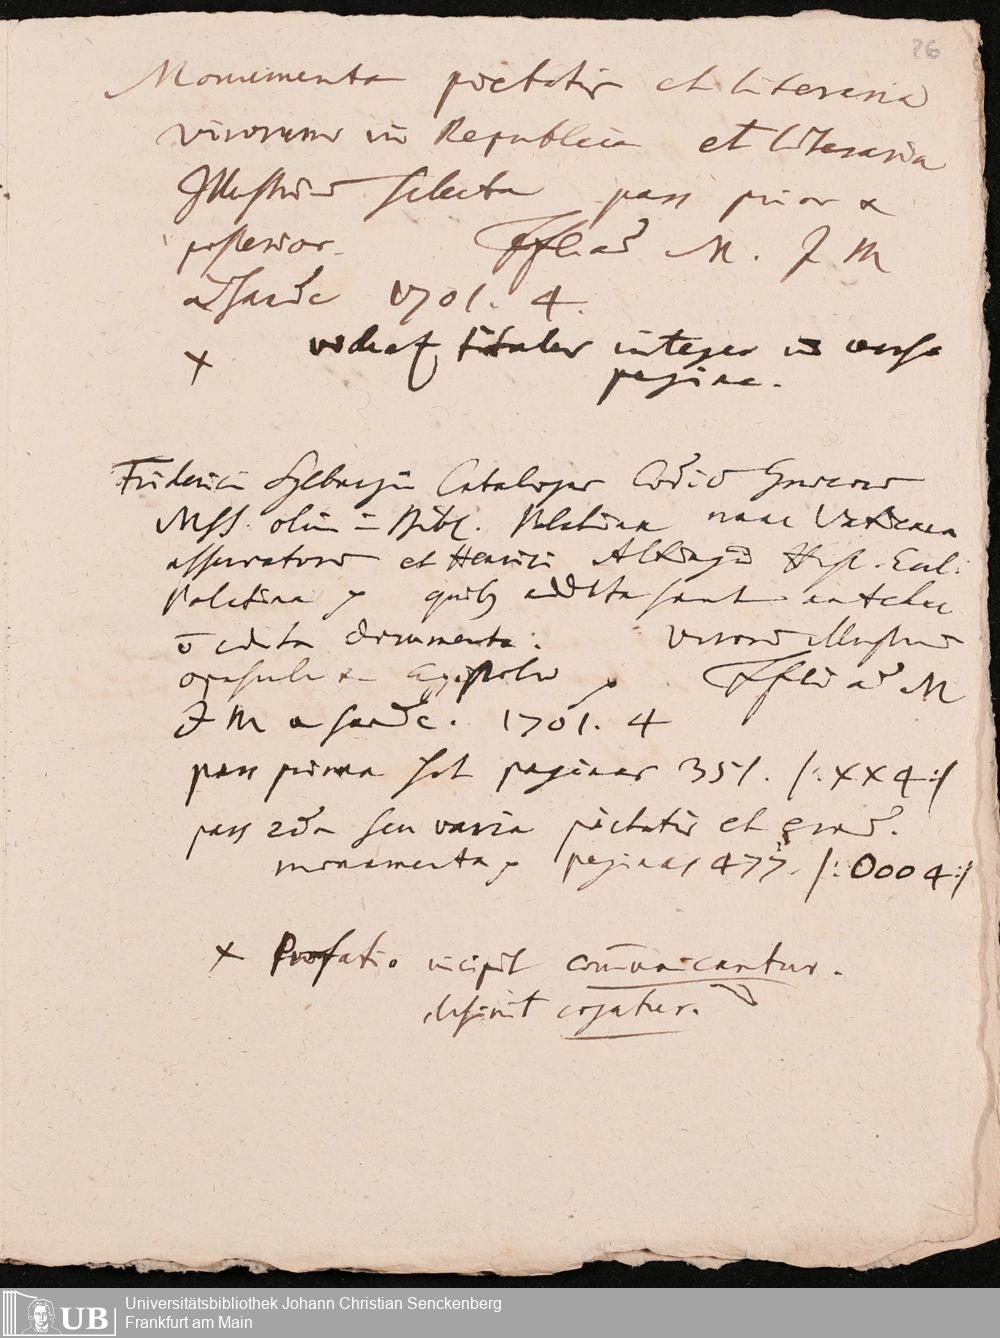 26
Monumenta pietatis et literaria
virorum in Republica et literaria
Illustrium selecta pars prior &
posterior. Ffti ad M. J M
a Sande 1701. 4.
+ videat titulus integer in
pagina.
Friderici Sylburgii Catalogus Codic Graecor
Mss. olim in Bibl. Palatina nunc Vaticana
asservatorum et Henrici Altingii Hist. Eccl.
Palatina quib addita sunt antehac
edita documenta. virorum illustrium
opuscula & Epistolae Ffti ad M
J M a Sande. 1701. 4
pars prima hat paginas 351. /: xx 4 :/
pars 2da seu varia pietatis et
monumenta paginas 477. /: Ooo 4 :/
+ Praefatio incipit communicantur.
desinit cogatur.
UB Universitätsbibliothek Johann Christian Senckenberg
Frankfurt am Main